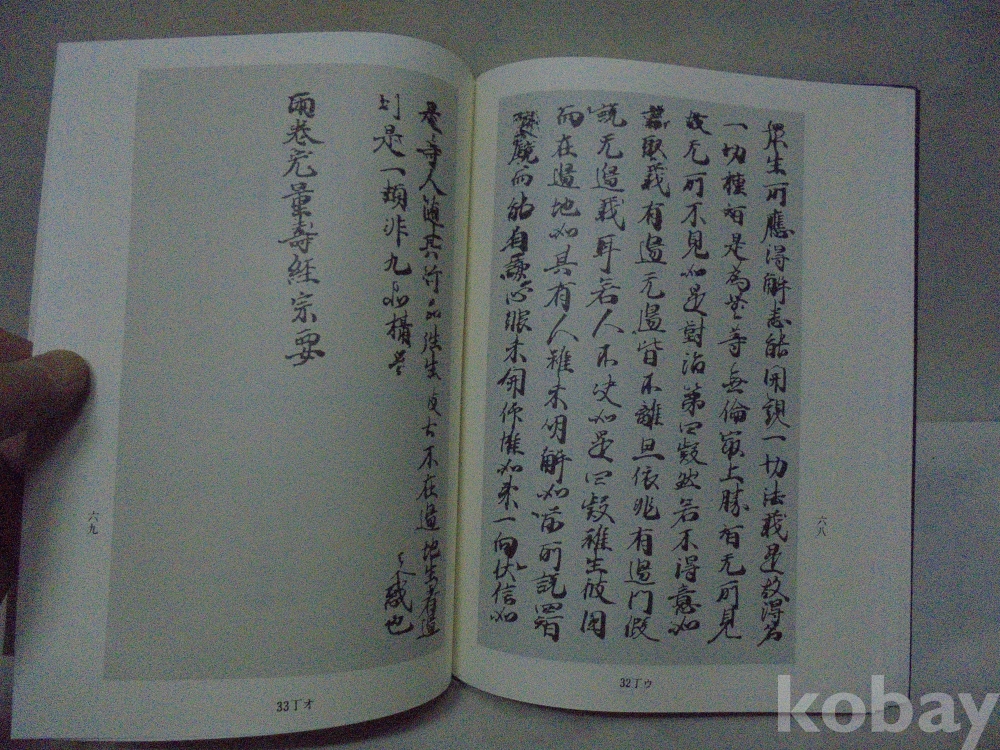 眾生所應得解悉能開現一切法義是故得名
一切種智是為無等無倫最上勝智无所見
故无所不見如是對治第四疑然若不得意如
取義有邊无邊皆不離且依非有邊門假
說无邊義耳若人不決如是四疑雖生彼國
而在邊地如其有人雖未明解如前所說四智
而能自謙心眼未開仰惟如來一向伏信如
六八
32丁ウ
是等人隨其行品往生彼土不在邊地生著邊
別是一類非九品攝 惑也
兩卷无量壽經宗要
六九
33丁オ
kobay